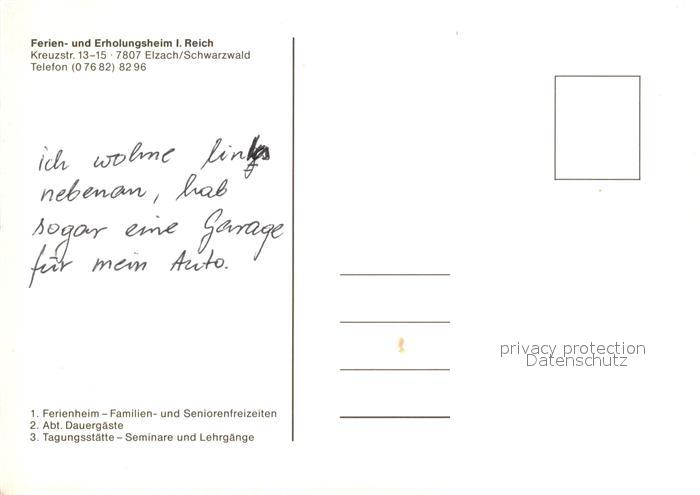 Ferien- und Erholungsheim I. Reich
Kreuzstr. 13–15 · 7807 Elzach/Schwarzwald
Telefon (0 76 82) 82 96
ich wohne links
nebenan, hab
sogar eine Garage
für mein Auto.
1. Ferienheim – Familien- und Seniorenfreizeiten
2. Abt. Dauergäste
3. Tagungsstätte – Seminare und Lehrgänge
privacy protection
Datenschutz